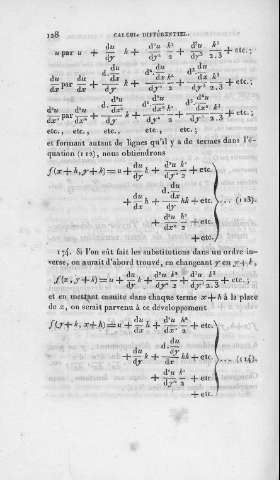 128 CALCUL DIFFÉRENTIEL.
u par u + du/dy k + d²u/dy² k²/2 + d³u/dy³ k³/2.3 + etc.;
du/dx par du/dx + d.du/dx/dy k + d².du/dx/dy² k²/2 + d³.du/dx/dy³ k³/2.3 + etc.;
d²u/dx² par d²u/dx² + d.d²u/dx²/dy k + d².d²u/dx²/dy² k²/2 + d³.d²u/dx²/dy³ k³/2.3 + etc.;
etc., etc., etc., etc., etc.;
et formant autant de lignes qu'il y a de termes dans l'é-
quation (112), nous obtiendrons
f(x+h, y+k) = u + du/dy k + d²u/dy² k²/2 + etc.
+ du/dx h + d.du/dx/dy hk + etc. ... (113).
+ d²u/dx² h²/2 + etc.
+ etc.
174. Si l'on eût fait les substitutions dans un ordre in-
verse, on aurait d'abord trouvé, en changeant y en y+k,
f(x, y+k) = u + du/dy k + d²u/dy² k²/2 + d³u/dy³ k³/2.3 + etc.;
et en mettant ensuite dans chaque terme x+h à la place
de x, on serait parvenu à ce développement
f(y+k, x+h) = u + du/dx h + d²u/dx² h²/2 + etc.
+ du/dy k + d.du/dy/dx hk + etc. ... (114).
+ d²u/dy² k²/2 + etc.
+ etc.